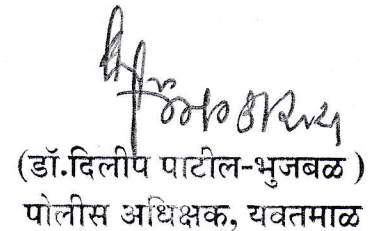 (डॉ.दिलीप पाटील-भुजबळ )
पोलीस अधिक्षक, यवतमाळ